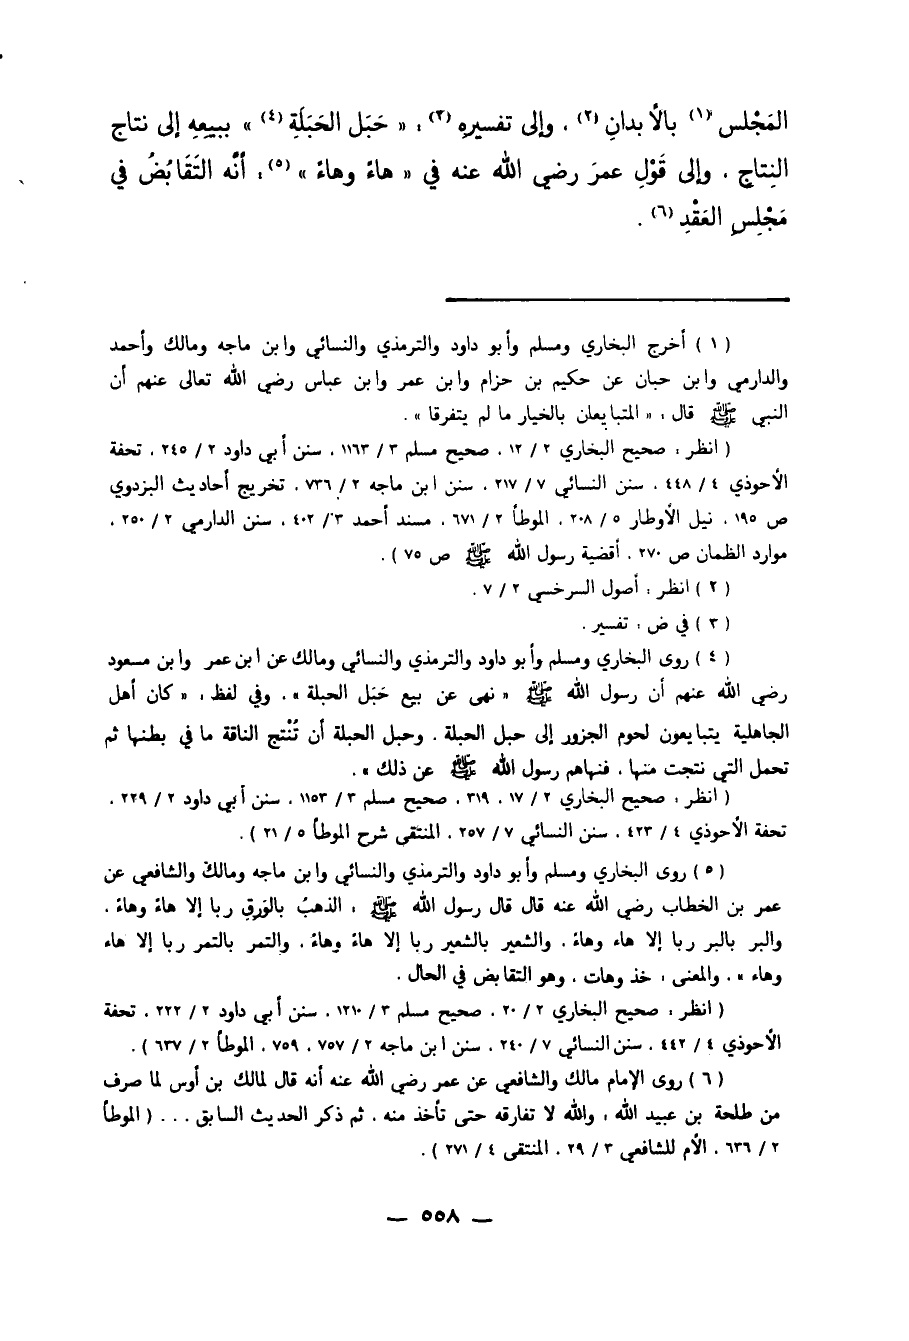 المَجْلس (١) بالأبدانِ (٢) ، وإلى تفسيرِهِ (٣) : « حَبَل الحَبَلَةِ (٤) » ببيعِهِ إلى نتاج
النِتاجِ ، وإلى قَوْلِ عمرَ رضي الله عنه في « هاءً وهاءً » (٥) : أنَّه التَقَابُضُ في
مَجْلِسِ العَقْدِ (٦) .
( ١ ) أخرج البخاري ومسلم وأبو داود والترمذي والنسائي وابن ماجه ومالك وأحمد
والدارمي وابن حبان عن حكيم بن حزام وابن عمر وابن عباس رضي الله تعالى عنهم أن
النبي ﷺ قال : « المتبايعان بالخيار ما لم يتفرقا » .
( انظر : صحيح البخاري ٢ / ١٢ ، صحيح مسلم ٣ / ١١٦٣ ، سنن أبي داود ٢ / ٢٤٥ ، تحفة
الأحوذي ٤ / ٤٤٨ ، سنن النسائي ٧ / ٢١٧ ، سنن ابن ماجه ٢ / ٧٣٦ ، تخريج أحاديث البزدوي
ص ١٩٥ ، نيل الأوطار ٥ / ٢٠٨ ، الموطأ ٢ / ٦٧١ ، مسند أحمد ٣ / ٤٠٢ ، سنن الدارمي ٢ / ٢٥٠ ،
موارد الظمآن ص ٢٧٠ ، أقضية رسول الله ﷺ ص ٧٥ ) .
( ٢ ) انظر : أصول السرخسي ٢ / ٧ .
( ٣ ) في ض : تفسير .
( ٤ ) روى البخاري ومسلم وأبو داود والترمذي والنسائي ومالك عن ابن عمر وابن مسعود
رضي الله عنهم أن رسول الله ﷺ « نهى عن بيع حَبَل الحبلة » ، وفي لفظ : « كان أهل
الجاهلية يتبايعون لحوم الجزور إلى حبل الحبلة ، وحبل الحبلة أن تُنْتج الناقة ما في بطنها ثم
تحمل التي نتجت منها ، فنهاهم رسول الله ﷺ عن ذلك » .
( انظر : صحيح البخاري ٢ / ١٧ ، ٣١٩ ، صحيح مسلم ٣ / ١١٥٣ ، سنن أبي داود ٢ / ٢٢٩ ،
تحفة الأحوذي ٤ / ٤٢٣ ، سنن النسائي ٧ / ٢٥٧ ، المنتقى شرح الموطأ ٥ / ٢١ ) .
( ٥ ) روى البخاري ومسلم وأبو داود والترمذي والنسائي وابن ماجه ومالك والشافعي عن
عمر بن الخطاب رضي الله عنه قال قال رسول الله ﷺ : الذهبُ بالوَرِقِ ربا إلا هاءً وهاءً ،
والبر بالبر ربا إلا هاء وهاءً ، والشعير بالشعير ربا إلا هاءً وهاءً ، والتمر بالتمر ربا إلا هاء
وهاء » ، والمعنى : خذ وهات ، وهو التقابض في الحال .
( انظر : صحيح البخاري ٢ / ٢٠ ، صحيح مسلم ٣ / ١٢١٠ ، سنن أبي داود ٢ / ٢٢٢ ، تحفة
الأحوذي ٤ / ٤٤٢ ، سنن النسائي ٧ / ٢٤٠ ، سنن ابن ماجه ٢ / ٧٥٧ ، ٧٥٩ ، الموطأ ٢ / ٦٣٧ ) .
( ٦ ) روى الإمام مالك والشافعي عن عمر رضي الله عنه أنه قال لمالك بن أوس لما صرف
من طلحة بن عبيد الله : والله لا تفارقه حتى تأخذ منه ، ثم ذكر الحديث السابق ... ( الموطأ
٢ / ٦٣٦ ، الأم للشافعي ٣ / ٢٩ ، المنتقى ٤ / ٢٧١ ) .
— ٥٥٨ —